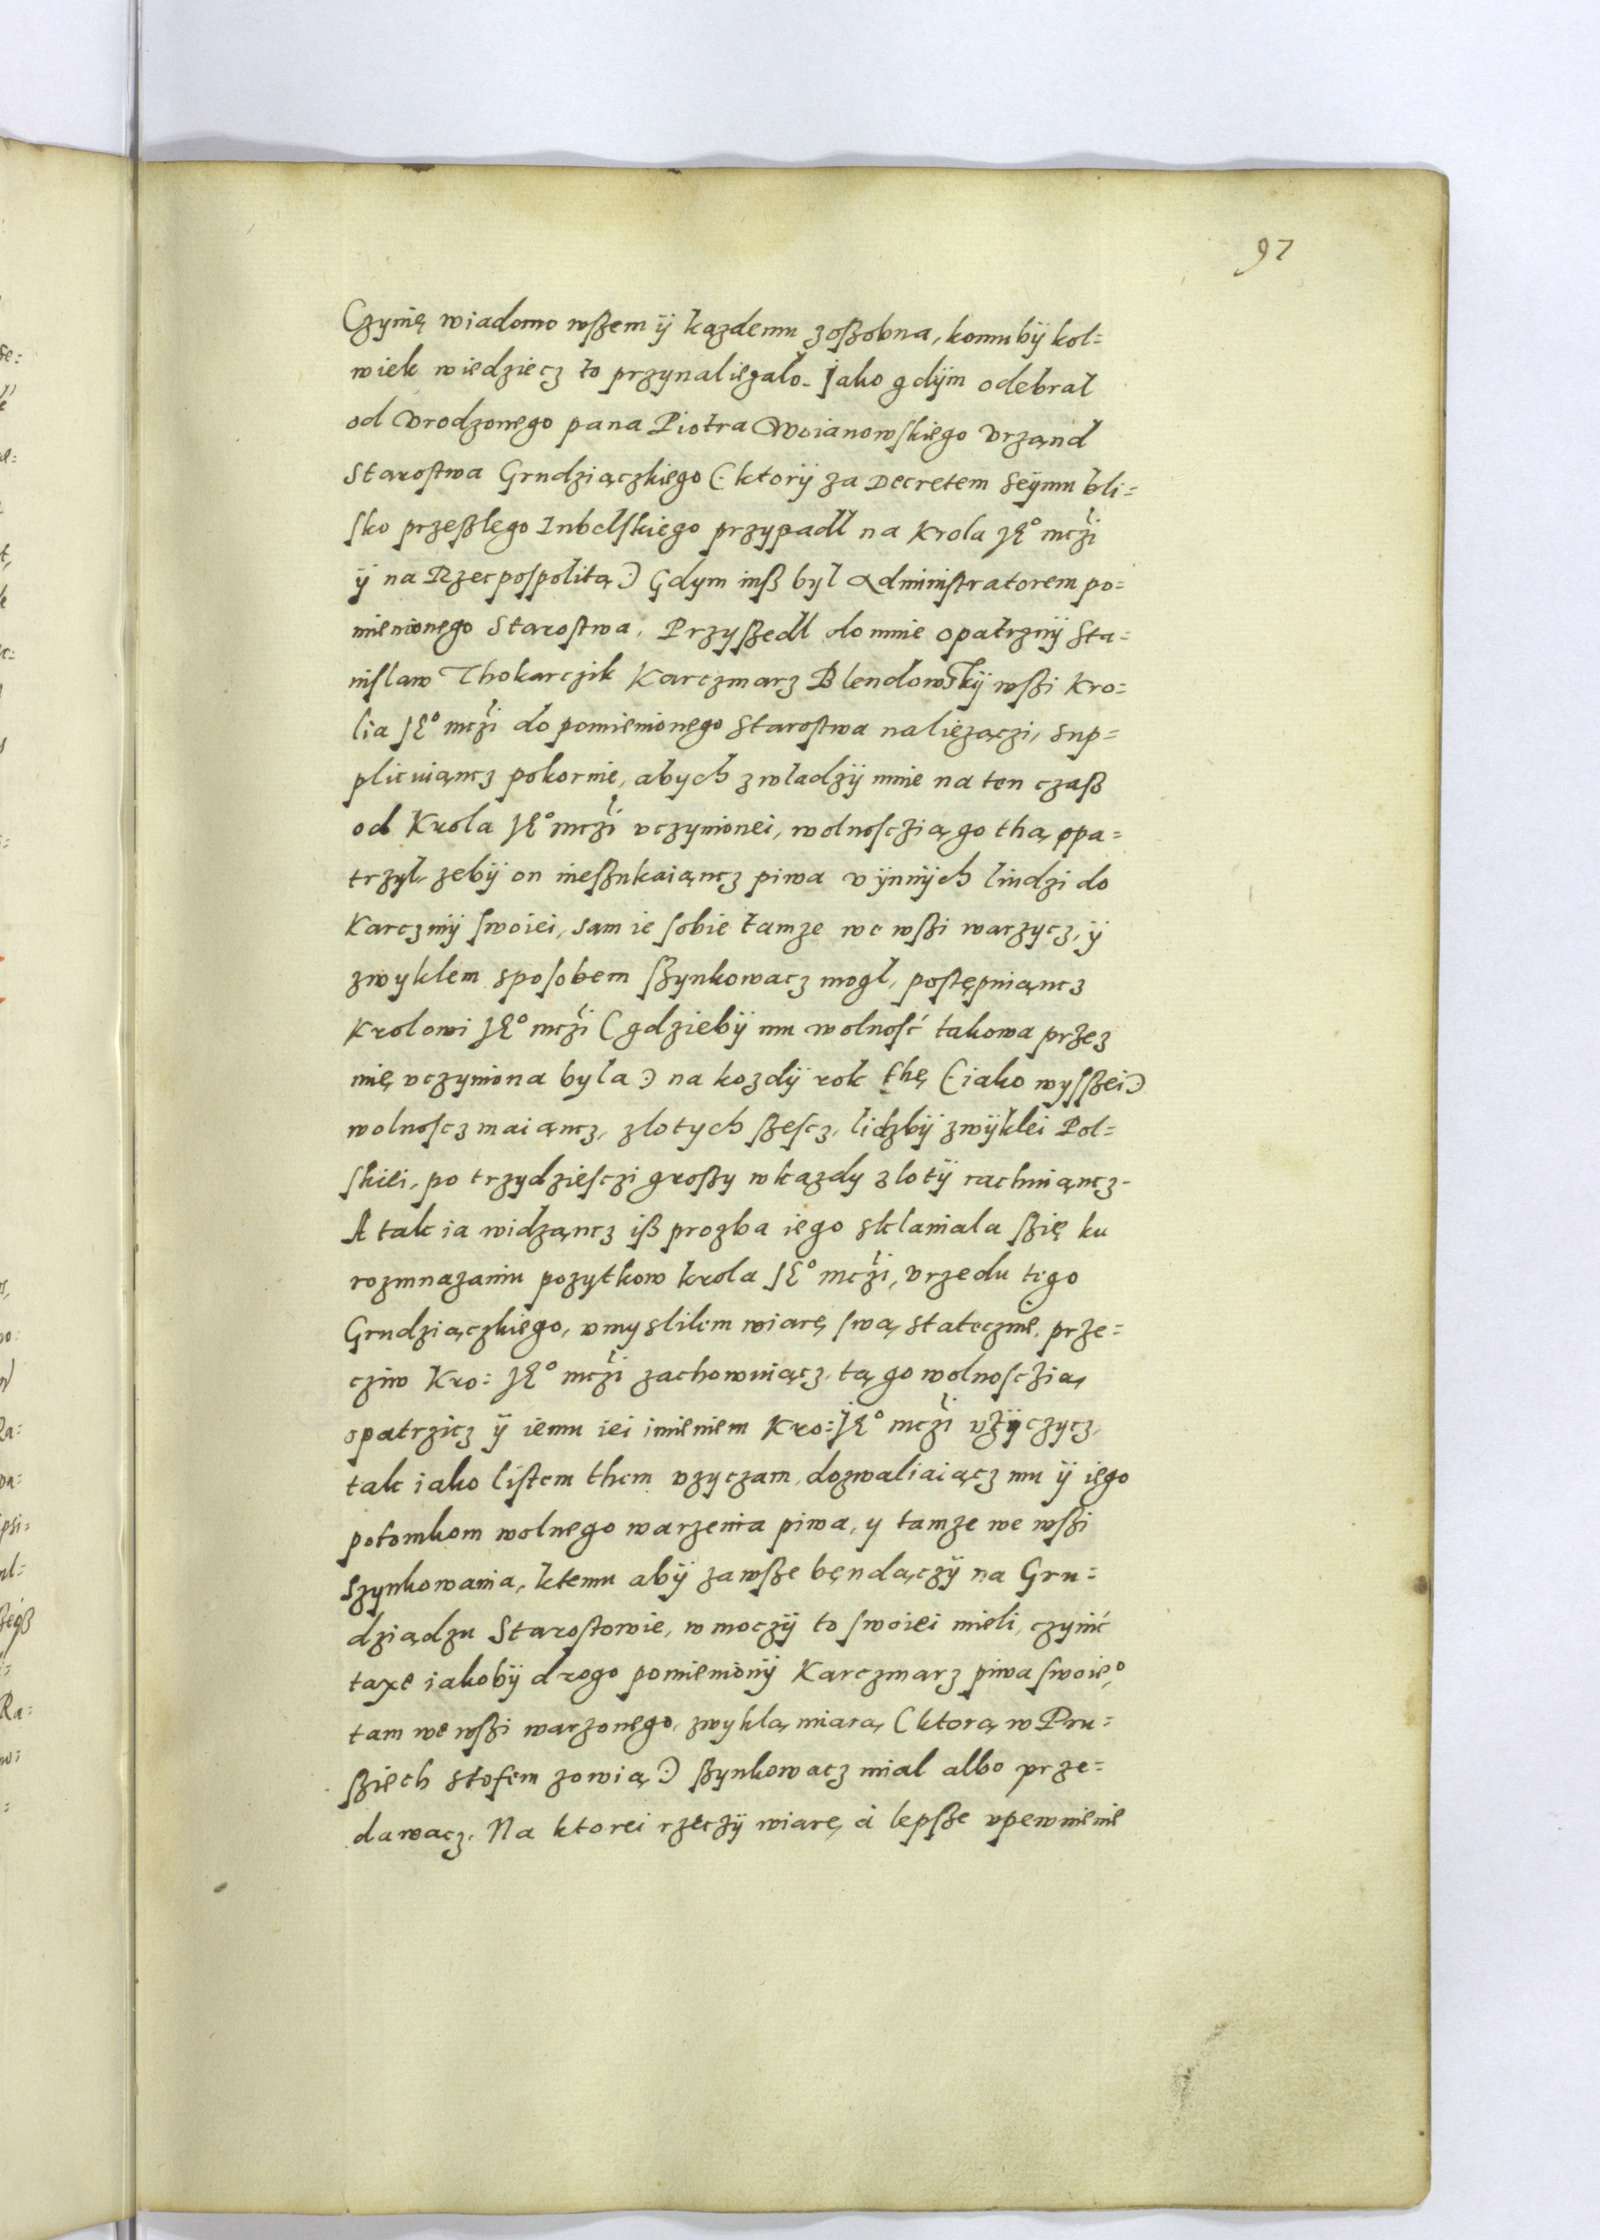 97
Czynię wiadomo wszem ÿ kązdemu zoßobna, komubÿ kol=
wiek wiedziecz to przynaliegało. Jako gdÿm odebrał
od Vrodzonego pana Piotra Woianowskiego Vrząnd
Starostwa Grudziączkiego (: ktorÿ za Decretem Seÿmu bli=
sko przeßlego Lubelskiego przypadł na Krola JE° mczi
ÿ na Rzecpospolitą :) Gdym iuß byl Administratorem po=
mienionego Starostwa, Przyßedl do mnie opatrznÿ Sta=
nislaw Thokarczik Karczmarz Blendowskÿ wßi Kro=
lia JE° mczi do pomienionego Starostwa naliezączi, sup=
plicuiąncz pokornie, abych z wladzÿ mnie na ten czaß
od Krola JE° mczi vczynionei, wolnosczią go thą opa=
trzyl, zebÿ on nießukaiąncz piwa v ÿnnÿch liudzi do
Karczmÿ swoiei, sam ie sobie tamze we wßi warzycz, ÿ
zwyklem sposobem ßzynkowacz mogł, postępuiąncz
Krolowi JE° mczi (gdziebÿ mu wolność takowa przez
mię vczyniona była :) na kozdÿ rok thę (: iako wyßzei :)
wolnoscz maiąncz, zlotych ßescz, lidzbÿ zwÿklei Pol=
skiei, po trzydziesczi großy w kązdy zlotÿ rachuiąncz.
A tak ia widząncz iß prozba iego sklaniala ßię ku
rozmnazaniu pozytkow krola JE° mczi, vrzedu tego
Grudziączkiego, vmyslilem wiarę swą stateczne, prze=
cziw Kro: JE° mczi zachowuiącz, tą go wolnosczią,
opatrzicz ÿ iemu iei imieniem Kro: JE° mczi vżÿczycz,
tak iako listem them vzyczam, dozwaliaiącz mu ÿ iego
potomkom wolnego warzenia piwa, y tamze we wßi
szynkowania, ktemu abÿ zawße bęndączÿ na Gru=
dziądzu Starostowie, w moczÿ to swoiei mieli, czynić
taxe iakobÿ drogo pomienionÿ Karczmarz piwa swoie°
tam we wßi warzonego, zwyklą miarą (ktorą w Pru=
ßiech stofem zowią :) ßynkowacz mial albo prze=
dawacz. Na ktorei rzeczÿ wiarę, á lepße vpewnienie